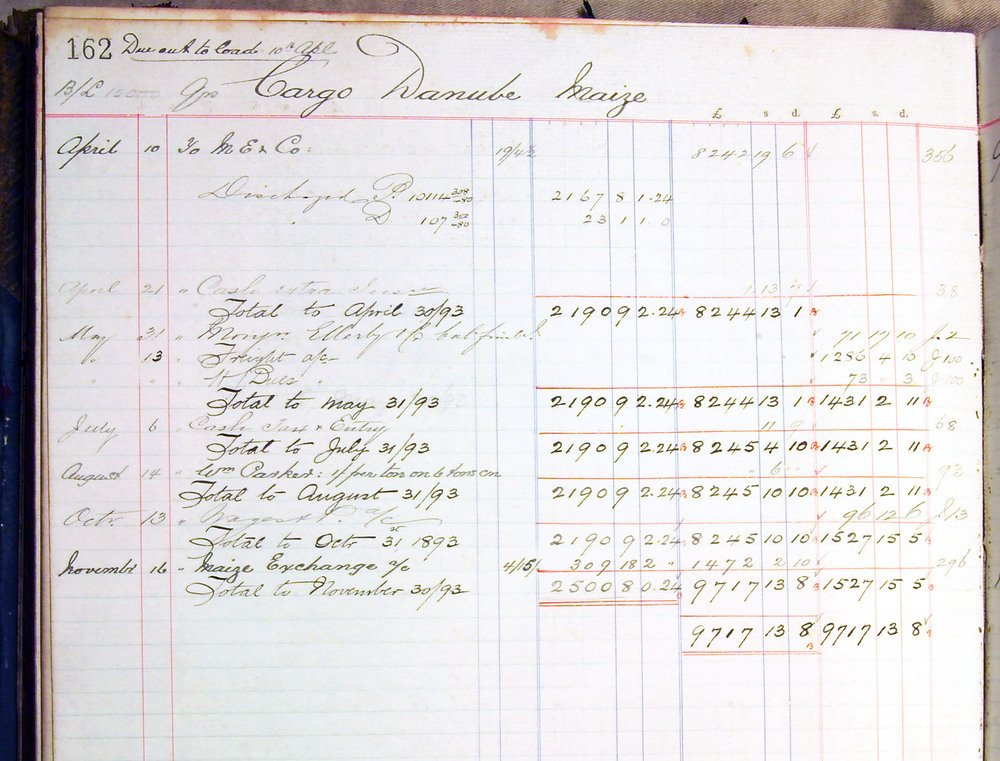 162 Due out to load 10th Apl
B/L 10000 Qrs Cargo Danube Maize
£ s d. £ s. d.
April 10 To M E & Co: 19/4½ 8242 19 6 356
Discharged P. 10114 308/480 2167 8 1.24
" D 107 302/480 23 1 1. 0
April 21 " Cash extra 1 13 7 38
Total to April 30/93 2190 9 2.24 8244 13 1
May 31 " Elderly 71 17 10 J.2
" 13 " Freight a/c 1286 4 10 J100
" " " Dues " 73 " 3 J100
Total to May 31/93 2190 9 2.24 8244 13 1 1431 2 11
July 6 " Cash Tax & Entry 11 9 68
Total to July 31/93 2190 9 2.24 8245 4 10 1431 2 11
August 14 " Wm Parker: 1/ per ton on 6 tons " 6 " 92
Total to August 31/93 2190 9 2.24 8245 10 10 1431 2 11
Octr 13 " a/c 96 12 6 J13
Total to Octr 31st 1893 2190 9 2.24 8245 10 10 1527 15 5
Novembr 16 " Maize Exchange a/c 4/15/ 309 18 2 " 1472 2 10 296
Total to November 30/93 2500 8 0.24 9717 13 8 1527 15 5
9717 13 8 9717 13 8